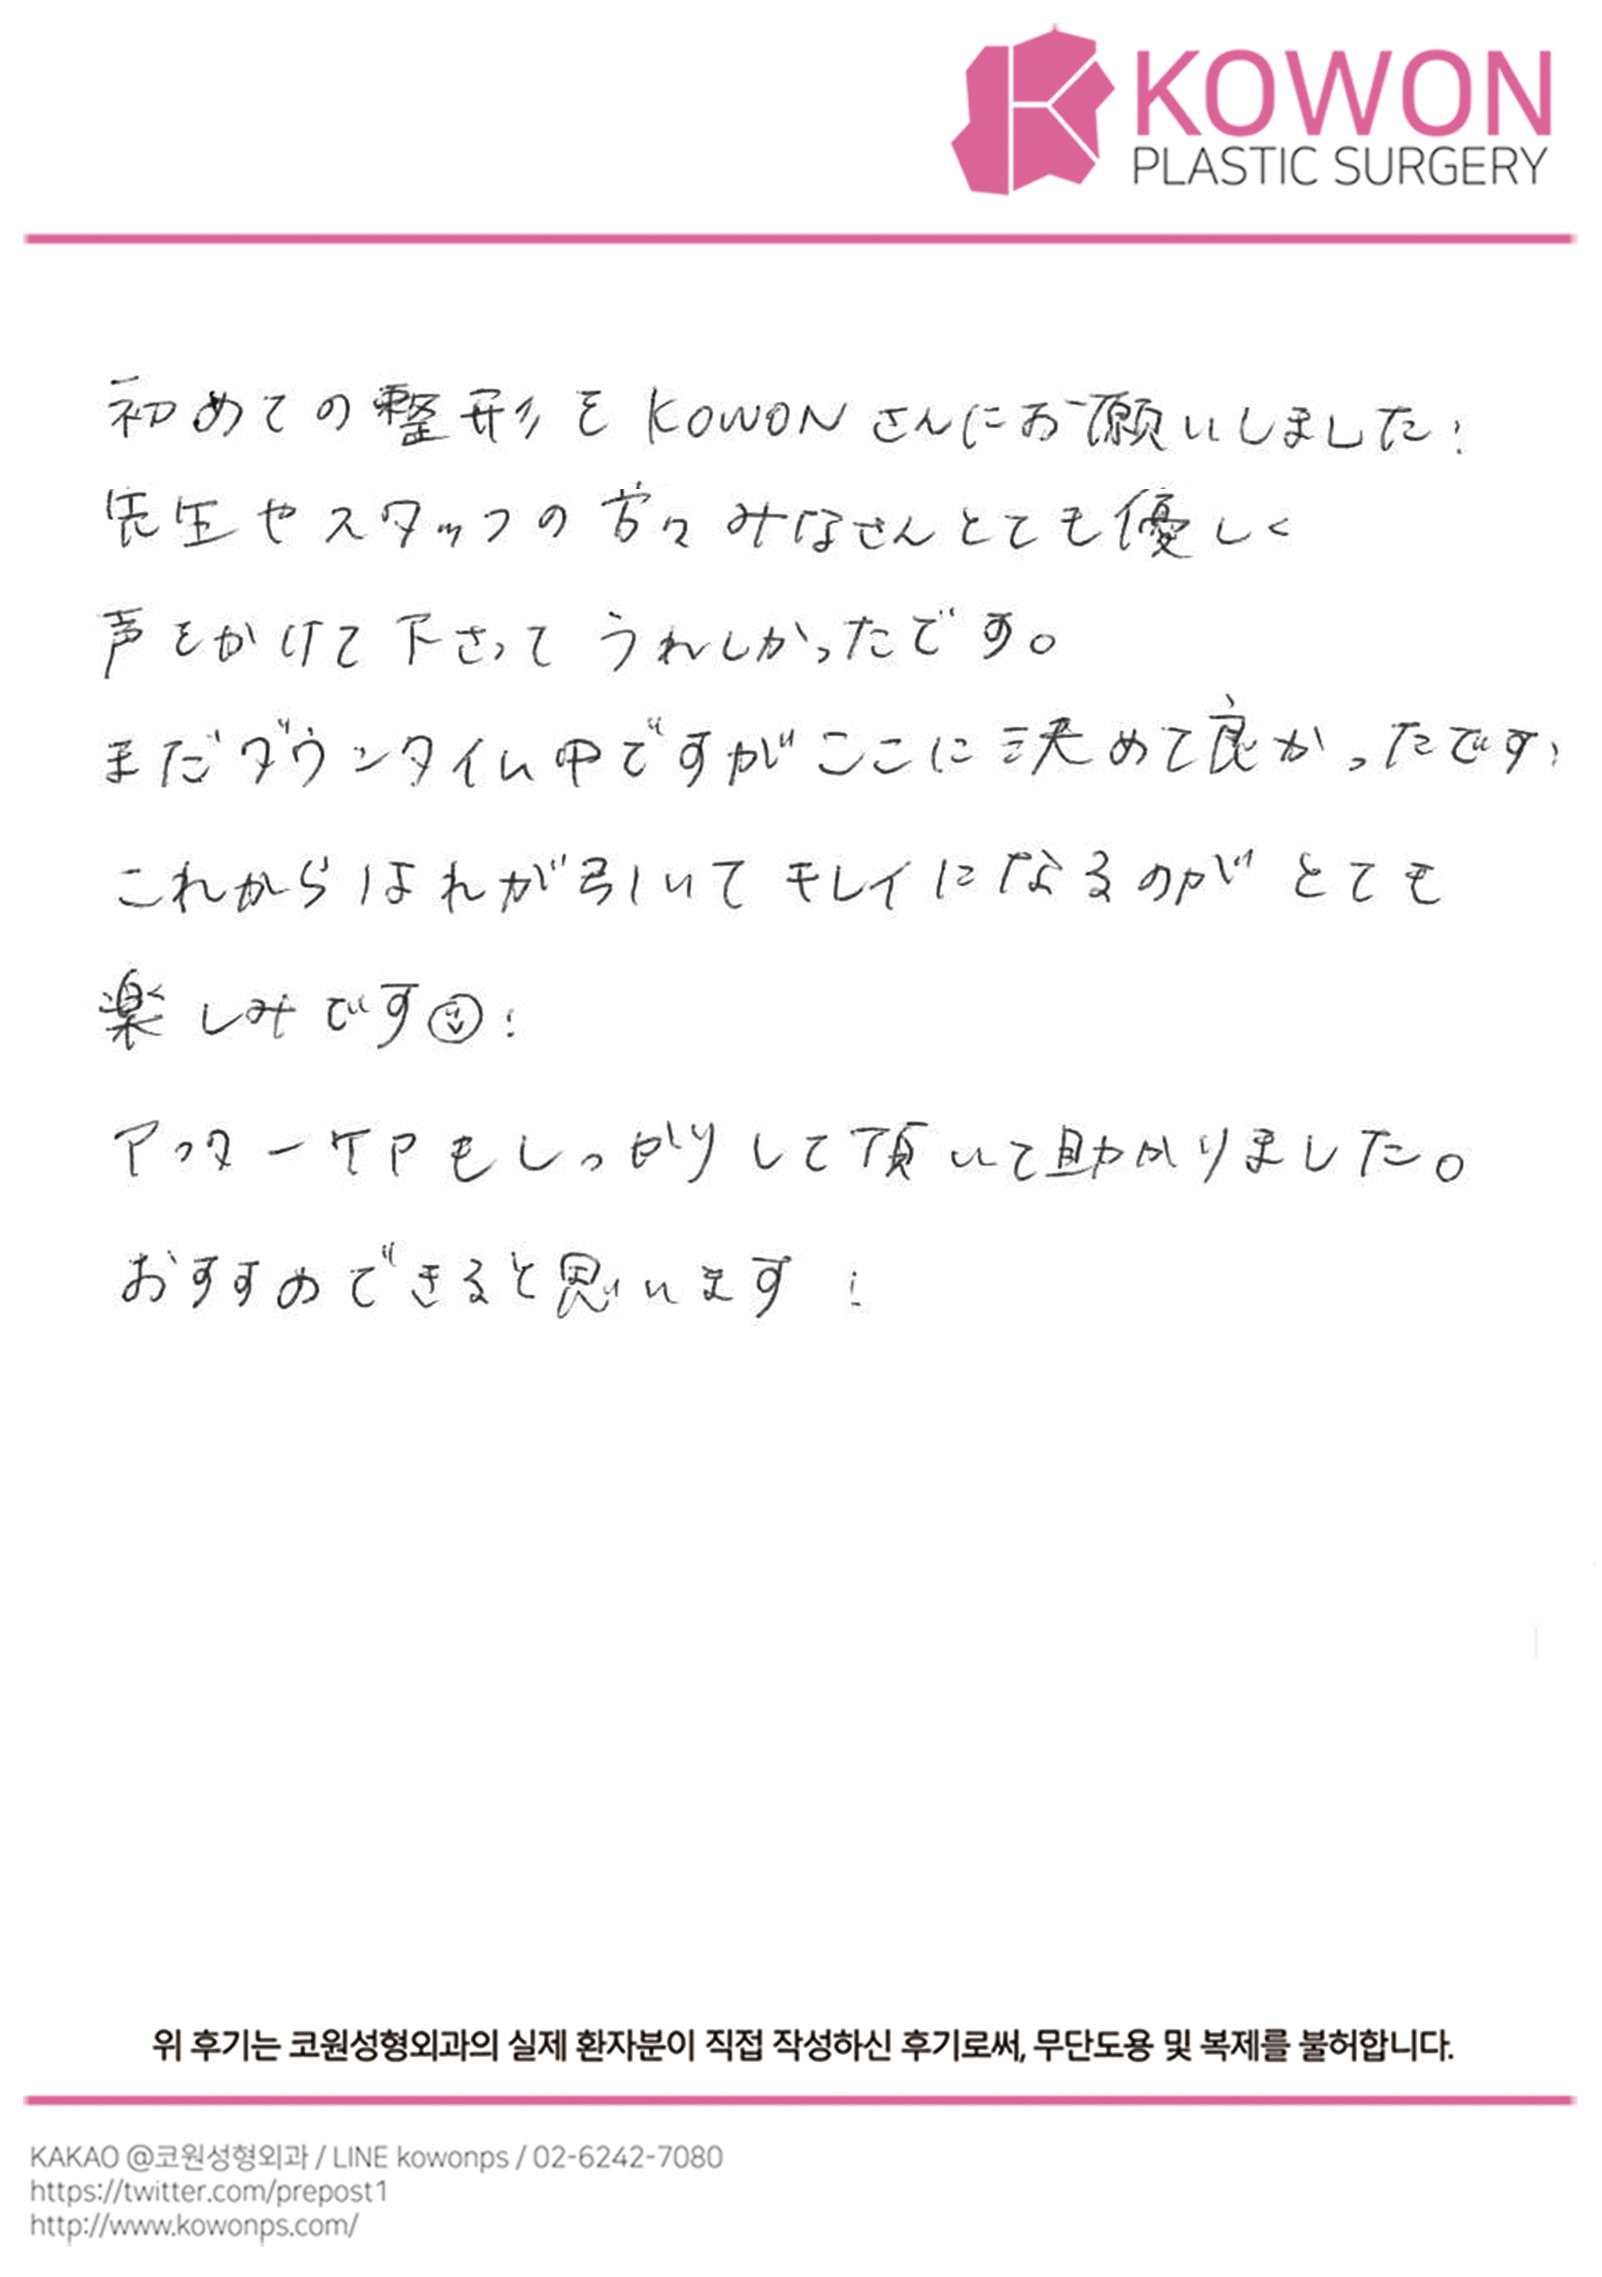 KOWON
PLASTIC SURGERY
初めての整形をKOWONさんにお願いしました!
先生やスタッフの方々みなさんとても優しく
声をかけて下さってうれしかったです。
まだダウンタイム中ですがここに決めて良かったです!
これからはれが引いてキレイになるのがとても
楽しみです!
アフターケアもしっかりして頂いて助かりました。
おすすめできると思います!
위 후기는 코원성형외과의 실제 환자분이 직접 작성하신 후기로써, 무단도용 및 복제를 불허합니다.
KAKAO @코원성형외과 / LINE kowonps / 02-6242-7080
https://twitter.com/prepost1
http://www.kowonps.com/